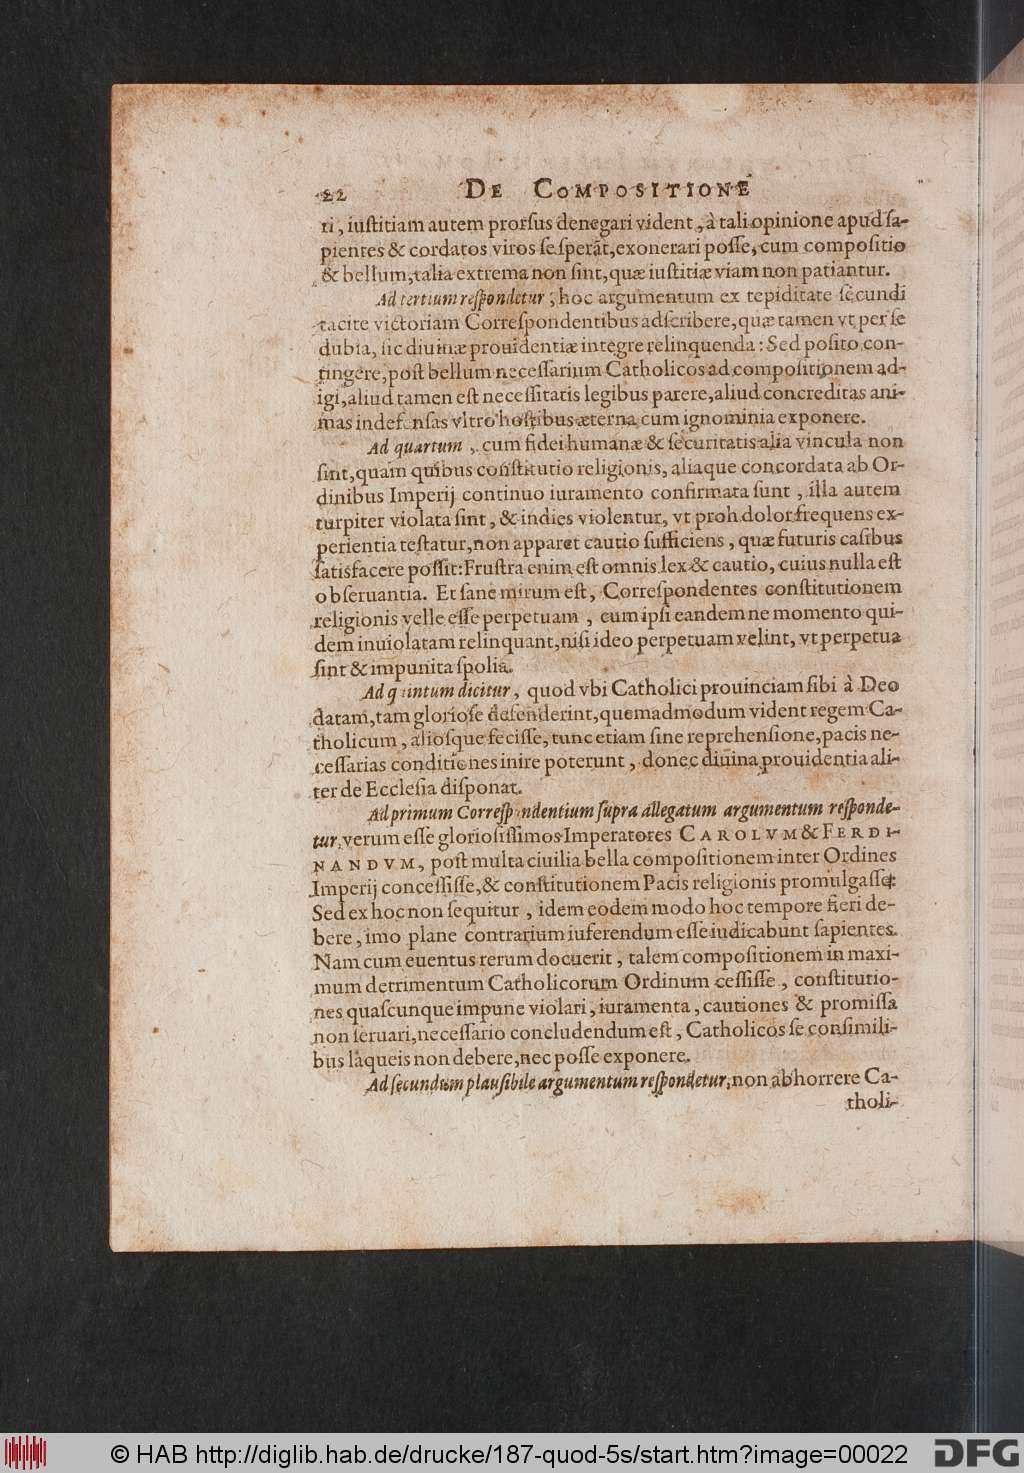 22 DE COMPOSITIONE
ti, iuſtitiam autem prorſus denegari vident, à tali opinione apud ſa-
pientes & cordatos viros ſe ſperāt, exonerari poſſe, cum compoſitio
& bellum, talia extrema non ſint, quæ iuſtitiæ viam non patiantur.
Ad tertium reſpondetur; hoc argumentum ex tepiditate ſecundi
tacite victoriam Correſpondentibus adſcribere, quæ tamen vt per ſe
dubia, ſic diuinæ prouidentiæ integre relinquenda: Sed poſito con-
tingere, poſt bellum neceſſarium Catholicos ad compoſitionem ad-
igi, aliud tamen eſt neceſſitatis legibus parere, aliud concreditas ani-
mas indefenſas vltro hoſtibus æterna cum ignominia exponere.
Ad quartum, cum fidei humanæ & ſecuritatis alia vincula non
ſint, quàm quibus conſtitutio religionis, aliaque concordata ab Or-
dinibus Imperij continuo iuramento confirmata ſunt, illa autem
turpiter violata ſint, & indies violentur, vt proh dolor frequens ex-
perientia teſtatur, non apparet cautio ſufficiens, quæ futuris caſibus
ſatisfacere poſſit: Fruſtra enim eſt omnis lex & cautio, cuius nulla eſt
obſeruantia. Et ſane mirum eſt, Correſpondentes conſtitutionem
religionis velle eſſe perpetuam, cum ipſi eandem ne momento qui-
dem inuiolatam relinquant, niſi ideo perpetuam velint, vt perpetua
ſint & impunita ſpolia.
Ad quintum dicitur, quod vbi Catholici prouinciam ſibi à Deo
datam, tam glorioſe defenderint, quemadmodum vident regem Ca-
tholicum, alioſque feciſſe, tunc etiam ſine reprehenſione, pacis ne-
ceſſarias conditiones inire poterunt, donec diuina prouidentia ali-
ter de Eccleſia diſponat.
Ad primum Correſpondentium ſupra allegatum argumentum reſponde-
tur, verum eſſe glorioſiſſimos Imperatores CAROLVM & FERDI-
NANDVM, poſt multa ciuilia bella compoſitionem inter Ordines
Imperij conceſſiſſe, & conſtitutionem Pacis religionis promulgaſſe:
Sed ex hoc non ſequitur, idem eodem modo hoc tempore fieri de-
bere, imo plane contrarium iuferendum eſſe iudicabunt ſapientes.
Nam cum euentus rerum docuerit, talem compoſitionem in maxi-
mum detrimentum Catholicorum Ordinum ceſſiſſe, conſtitutio-
nes quaſcunque impune violari, iuramenta, cautiones & promiſſa
non ſeruari, neceſſario concludendum eſt, Catholicos ſe conſimili-
bus laqueis non debere, nec poſſe exponere.
Ad ſecundum plauſibile argumentum reſpondetur, non abhorrere Ca-
tholi-
© HAB http://diglib.hab.de/drucke/187-quod-5s/start.htm?image=00022 DFG